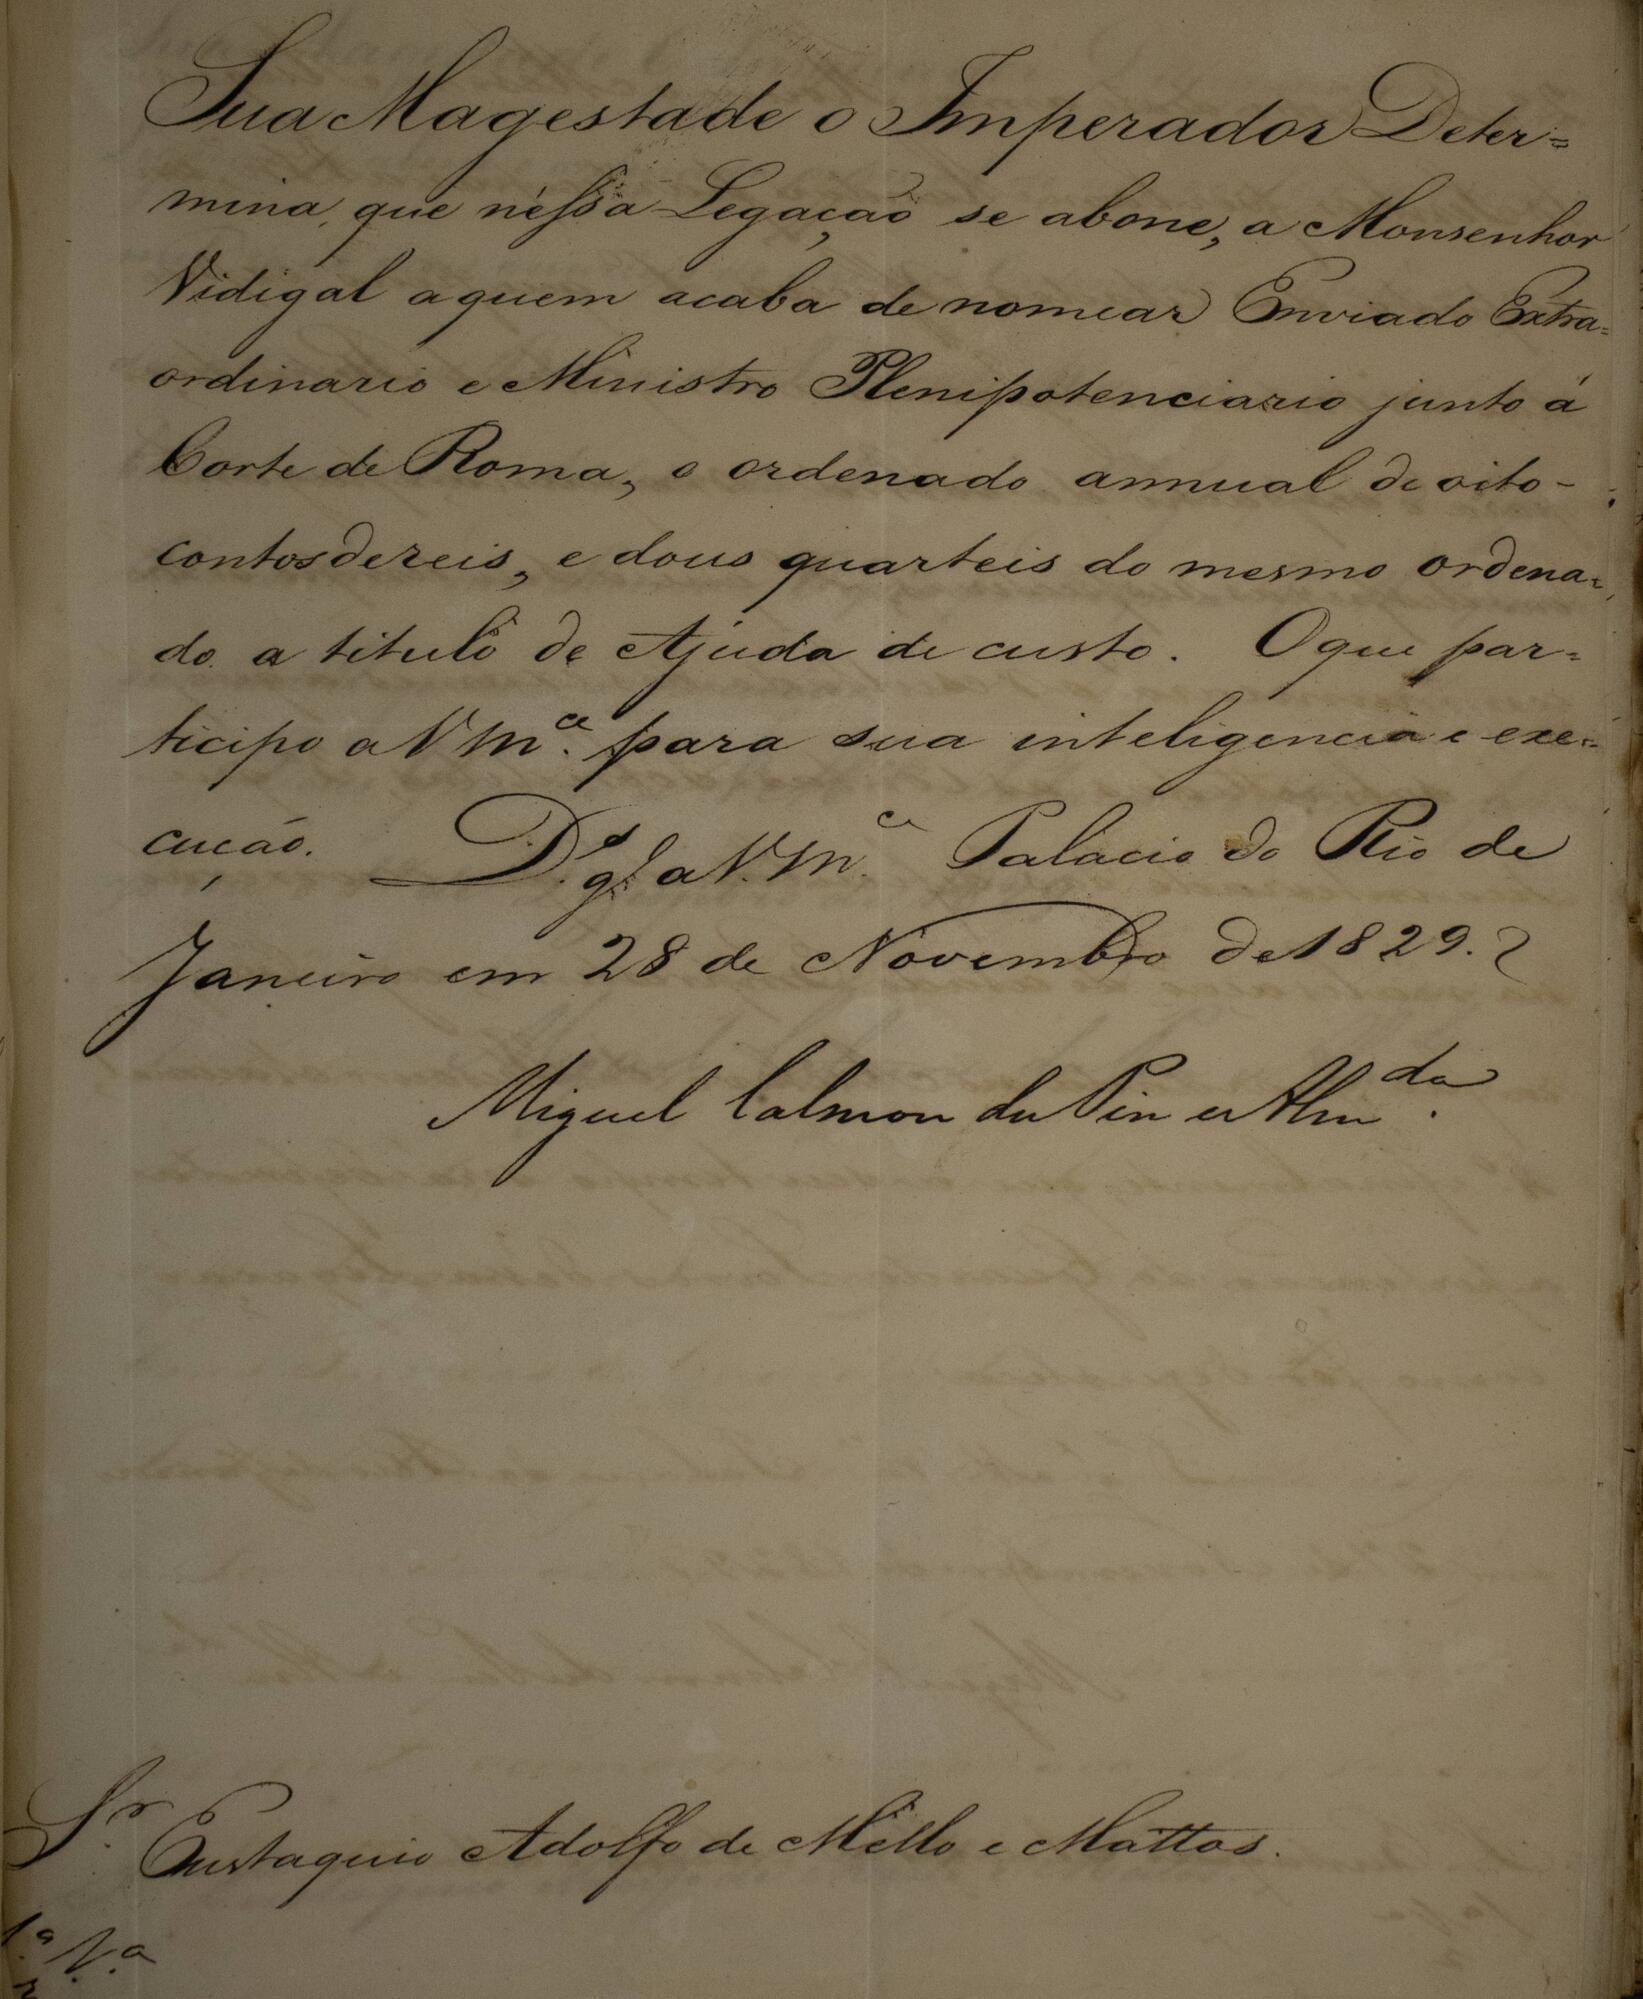 Sua Magestade o Imperador Deter=
mina, que néssa Legação se abone, a Monsenhor
Vidigal a quem acaba de nomear Enviado Extra=
ordinario e Ministro Plenipotenciario junto á
Corte de Roma, o ordenado annual de oito-
contos de reis, e dous quarteis do mesmo ordena=
do a titulo de Ajuda de custo. O que par=
ticipo a V Mce. para sua inteligencia e exe=
cução. Ds. ge. a V. Mce. Palacio do Rio de
Janeiro em 28 de Novembro de 1829.
Miguel Calmon du Pin e Almda.
Sr. Eustaquio Adolfo de Mello e Mattos.
1.a V.a